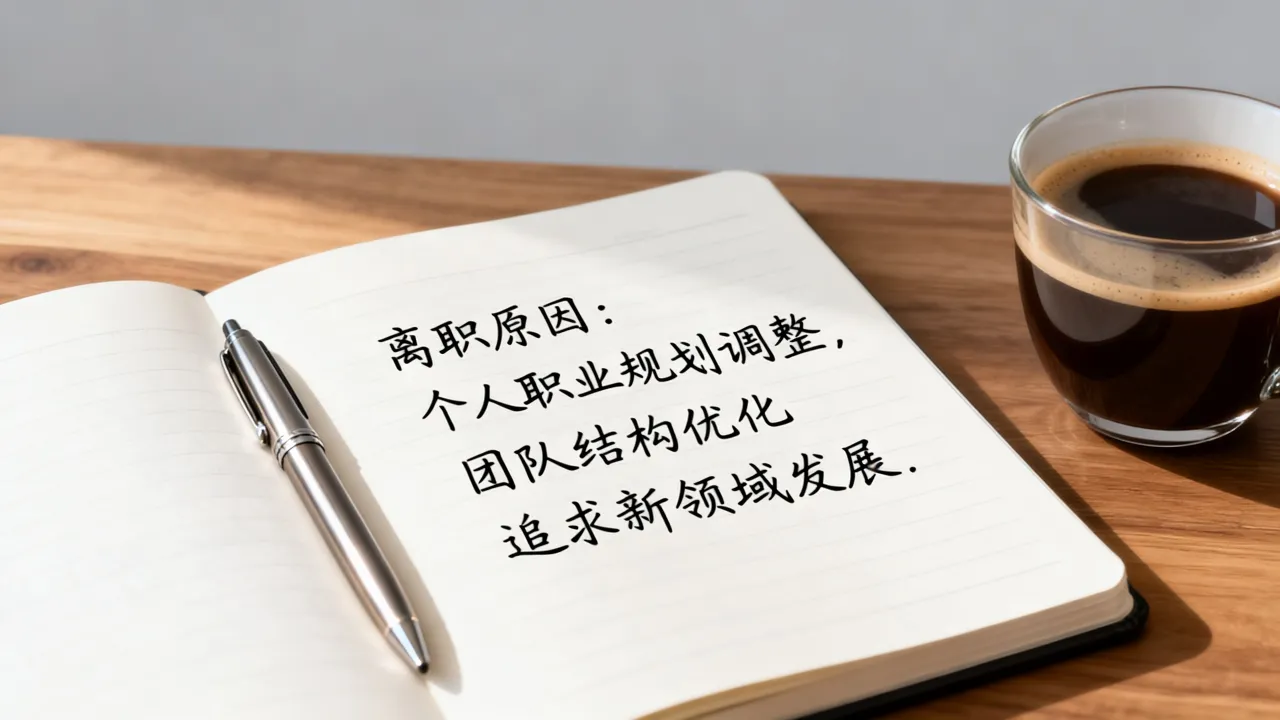 离职原因：
个人职业规划调整，
团队结构优化
追求新领域发展.